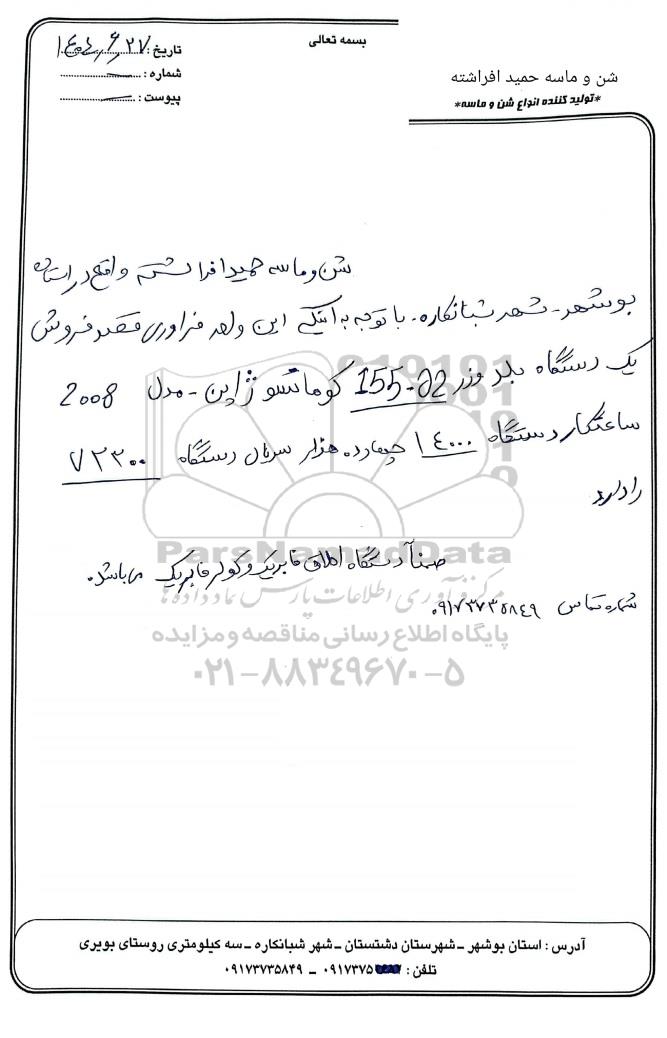 بسمه تعالی
تاریخ : ۱۴۰۴/۶/۲۷
شماره :
پیوست :
شن و ماسه حمید افراشته
*تولید کننده انواع شن و ماسه*
شن و ماسه حمید افراشته واقع در استان
بوشهر - شهر شبانکاره. با توجه به اینکه این واحد فراوری قصد فروش
یک دستگاه بلدوزر 155-A2 کوماتسو ژاپن - مدل 2008
ساعتکار دستگاه ۱۴۰۰۰ چهارده هزار سریال دستگاه ۷۲۳۰۰
را دارد
ضمناً دستگاه اطاق فابریک و کولر فابریک می باشد.
شماره تماس ۰۹۱۷۳۷۳۵۸۴۹
ParsNamadData
مرکز فرآوری اطلاعات پارس نماد داده ها
پایگاه اطلاع رسانی مناقصه و مزایده
۰۲۱-۸۸۳۴۹۶۷۰-۵
آدرس : استان بوشهر - شهرستان دشتستان - شهر شبانکاره - سه کیلومتری روستای بویری
تلفن : ۰۹۱۷۳۷۵ - ۰۹۱۷۳۷۳۵۸۴۹